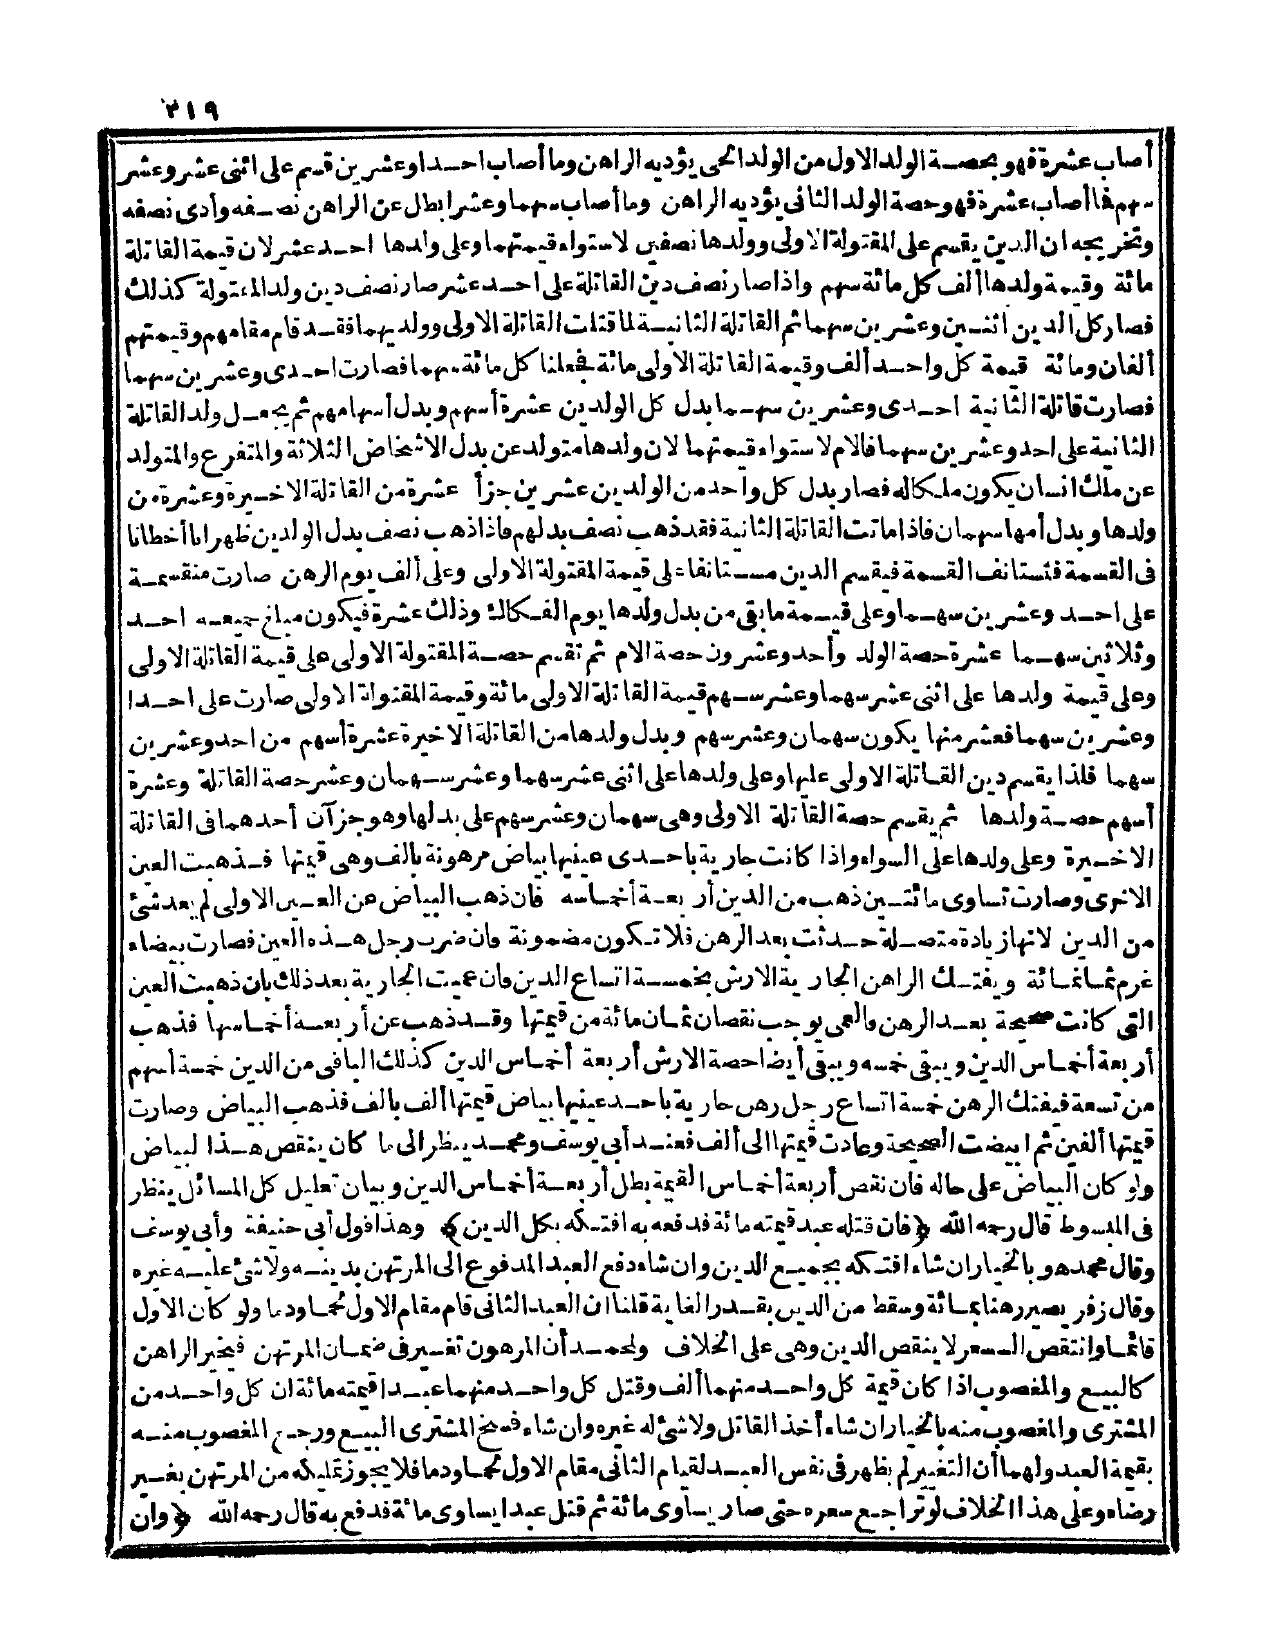 ٣١٩
أصاب عشرة فهو بحصة الولد الاول من الولد الحى يؤديه الراهن وما أصاب احدا وعشرين قسم على اثنى عشر وعشر
سهم فما أصاب عشرة فهو حصة الولد الثانى يؤديه الراهن وما أصاب سهما وعشرا بطل عن الراهن نصفه وأدى نصفه
وتخريجه ان الدين يقسم على المقتولة الاولى وولدها نصفين لاستواء قيمتهما وعلى ولدها احد عشر لان قيمة القاتلة
مائة وقيمة ولدها ألف كل مائة سهم واذا صار نصف دين القاتلة على احد عشر صار نصف دين ولد المقتولة كذلك
فصار كل الدين اثنين وعشرين سهما ثم القاتلة الثانية لما قتلت القاتلة الاولى وولديهما فقد قام مقامهم وقيمتهم
ألفان ومائة قيمة كل واحد ألف وقيمة القاتلة الاولى مائة فجعلنا كل مائة سهما فصارت احدى وعشرين سهما
فصارت قاتلة الثانية احدى وعشرين سهما بدل كل الولدين عشرة أسهم وبدل أسهامهم ثم يجعل ولد القاتلة
الثانية على احد وعشرين سهما فالام لاستواء قيمتهما لان ولدها متولد عن بدل الاشخاص الثلاثة والمتفرع والمتولد
عن ملك انسان يكون ملكا له فصار بدل كل واحد من الولدين عشرين جزأ عشرة من القاتلة الاخيرة وعشرة من
ولدها وبدل أمها سهمان فاذا ماتت القاتلة الثانية فقد ذهب نصف بدلهم فاذا ذهب نصف بدل الولدين ظهر انا أخطانا
فى القسمة فنستانف القسمة فيقسم الدين مستانفا على قيمة المقتولة الاولى وعلى ألف يوم الرهن صارت منقسمة
على احد وعشرين سهما وعلى قيمة ما بقى من بدل ولدها يوم الفكاك وذلك عشرة فيكون مبلغ جميعه احد
وثلاثين سهما عشرة حصة الولد وأحد وعشرون حصة الام ثم تقسم حصة المقتولة الاولى على قيمة القاتلة الاولى
وعلى قيمة ولدها على اثنى عشر سهما وعشر سهم قيمة القاتلة الاولى مائة وقيمة المقتولة الاولى صارت على احدا
وعشرين سهما فعشر منها يكون سهمان وعشر سهم وبدل ولدها من القاتلة الاخيرة عشرة أسهم من احد وعشرين
سهما فلذا يقسم دين القاتلة الاولى عليها وعلى ولدها على اثنى عشر سهما وعشر سهمان وعشر حصة القاتلة وعشرة
أسهم حصة ولدها ثم يقسم حصة القاتلة الاولى وهى سهمان وعشر سهم على بدلها وهو جزآن أحدهما فى القاتلة
الاخيرة وعلى ولدها على السواء واذا كانت جارية باحدى عينيها بياض مرهونة بالف وهى قيمتها فذهبت العين
الاخرى وصارت تساوى مائتين ذهب من الدين أربعة أخماسه فان ذهب البياض عن العين الاولى لم يعد شئ
من الدين لانها زيادة متصلة حدثت بعد الرهن فلا تكون مضمونة وان ضرب رجل هذه العين فصارت بيضاء
غرم ثمانمائة ويفتك الراهن الجارية الارش بخمسة اتساع الدين وان عميت الجارية بعد ذلك بان ذهبت العين
التى كانت صحيحة بعد الرهن والعمى يوجب نقصان ثمان مائة من قيمتها وقد ذهب عن أربعة أخماسها فذهب
أربعة أخماس الدين ويبقى خمسه ويبقى أيضا حصة الارش أربعة أخماس الدين كذلك الباقى من الدين خمسة أسهم
من تسعة فيفتك الرهن خمسة اتساع رجل رهن جارية باحد عينيها بياض قيمتها ألف بالف فذهب البياض وصارت
قيمتها ألفين ثم ابيضت الصحيحة وعادت قيمتها الى ألف فعند أبى يوسف ومحمد ينظر الى ما كان ينقص هذا لبياض
ولو كان البياض على حاله فان نقص أربعة أخماس القيمة بطل أربعة أخماس الدين وبيان تعليل كل المسائل ينظر
فى المبسوط قال رحمه الله ﴿فان قتله عبد قيمته مائة فدفعه به افتكه بكل الدين﴾ وهذا قول أبى حنيفة وأبى يوسف
وقال محمد هو بالخيار ان شاء افتكه بجميع الدين وان شاء دفع العبد المدفوع الى المرتهن بدينه ولا شئ عليه غيره
وقال زفر يصير رهنا بمائة وسقط من الدين بقدر الغاية قلنا ان العبد الثانى قام مقام الاول لحما ودما ولو كان الاول
قائما وانتقص السعر لا ينقص الدين وهى على الخلاف ولمحمد أن المرهون تغير فى ضمان المرتهن فيخير الراهن
كالبيع والمغصوب اذا كان قيمة كل واحد منهما ألف وقتل كل واحد منهما عبدا قيمته مائة ان كل واحد من
المشترى والمغصوب منه بالخيار ان شاء أخذ القاتل ولا شئ له غيره وان شاء فسخ المشترى البيع ورجع المغصوب منه
بقيمة العبد ولهما أن التغير لم يظهر فى نفس العبد لقيام الثانى مقام الاول لحما ودما فلا يجوز تمليكه من المرتهن بغير
رضاه وعلى هذا الخلاف لو تراجع سعره حتى صار يساوى مائة ثم قتل عبدا يساوى مائة فدفع به قال رحمه الله ﴿وان